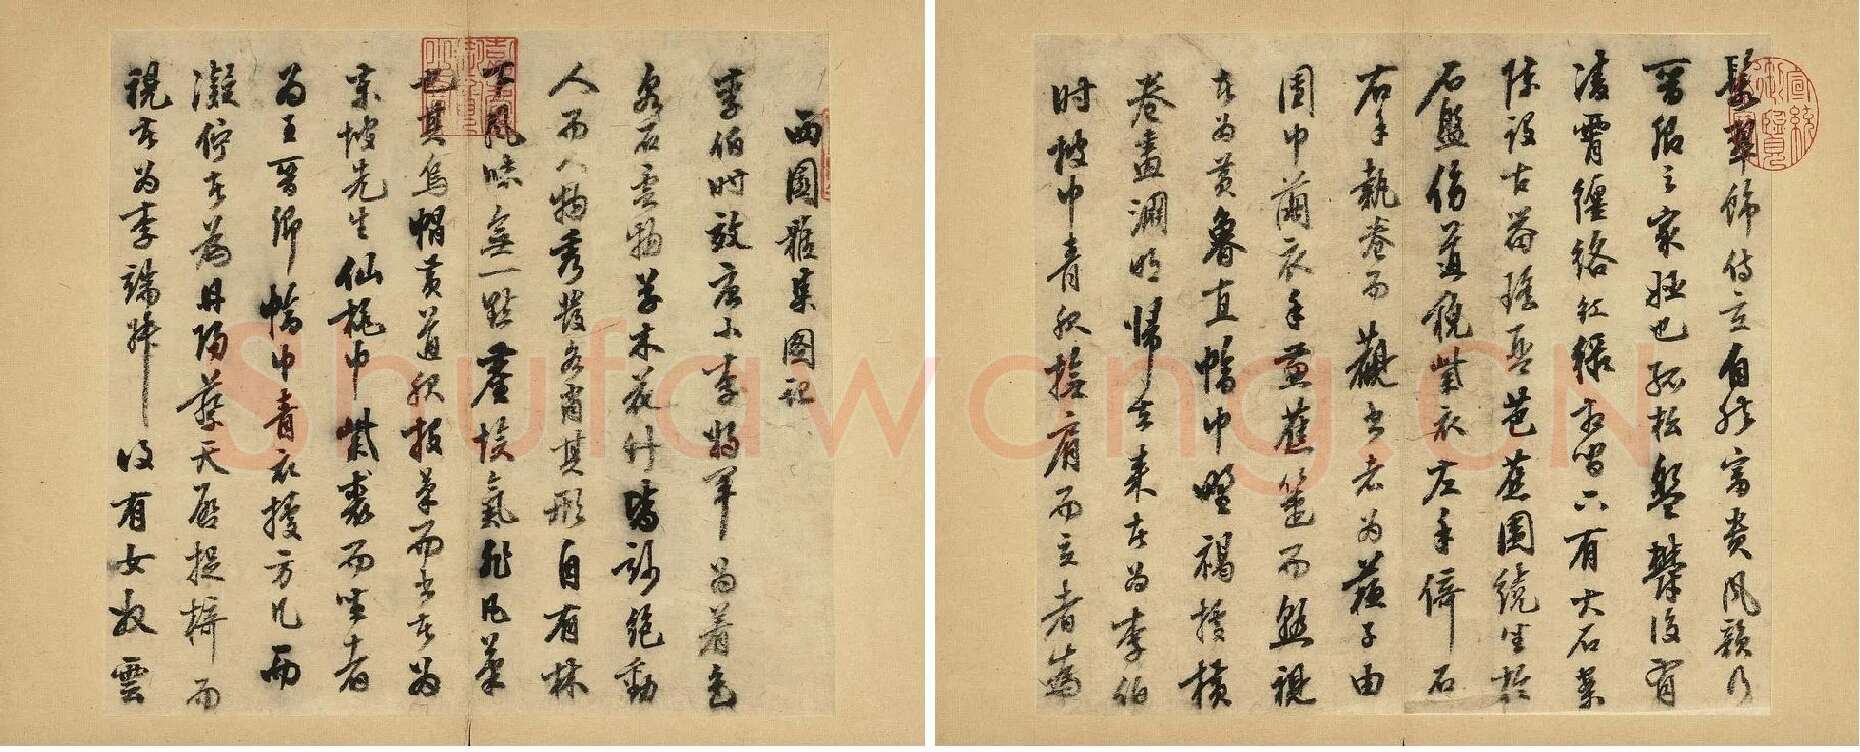 西園雅集图記
李伯时效唐小李將軍为着色
泉石雲物草木花竹皆妙绝動
人而人物秀發各肖其形自有林
下風味無一點塵埃氣非凡筆
也其烏帽黄道服投筆而书者为
東坡先生仙桃巾紫裘而坐者
为王晋卿幅巾青衣據方几而
凝佇者为丹陽蔡天啓捉椅而
视者为李端叔後有女奴雲
鬟翠飾侍立自然富贵風韻乃
晋卿之家姬也孤松盤鬱後有
凌霄纏络红绿相间下有大石案
陈设古器瑶琴芭蕉围繞坐於
石盤傍道帽紫衣左手倚石
右手執卷而觀书者为蘇子由
團巾繭衣手秉蕉箑而熟视
者为黄魯直幅巾野褐據横
卷畫淵明歸去来者为李伯
时披巾青服撫肩而立者晁
宣統御覽
Shufawang.CN